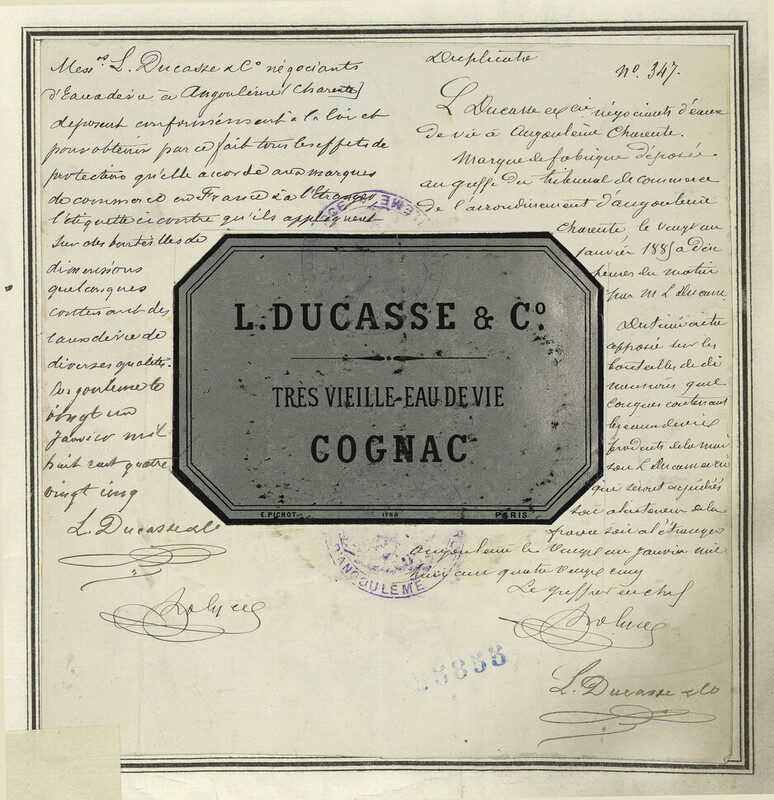 Mess.rs L. Ducasse & Co négociants
d'Eaux de vie à Angoulême (Charente)
déposent conformément à la loi et
pour obtenir par ce fait tous les effets de
protection qu'elle accorde aux marques
de commerce en France & à l'Etranger
l'étiquette ci contre qu'ils appliquent
sur des bouteilles de
dimensions
quelconques
contenant des
eaux de vie de
diverses qualités.
Angoulême le
vingt un
Janvier mil
huit cent quatre
vingt cinq
L. Ducasse & Co
Duplicata
No. 347.
L Ducasse et Cie négociants d'eaux
de vie à Angoulême Charente.
Marque de fabrique déposée
au greffe du tribunal de commerce
de l'arrondissement d'Angoulême
Charente le vingt un
janvier 1885 à dix
heures du matin
par M L Ducasse
Destinée à être
apposée sur les
bouteilles de di
mensions quel
conques contenant
les eaux de vie
produits de la mai
son L Ducasse et Cie
qui seront expédiés
soit à l'intérieur de la
france soit à l'étranger
Angoulême le vingt un janvier mil
huit cent quatre vingt cinq
Le greffier en chef
L. Ducasse & Co
L. DUCASSE & Co.
TRÈS VIEILLE EAU DE VIE
COGNAC
E. PICHOT
PARIS
D'ANGOULÊME